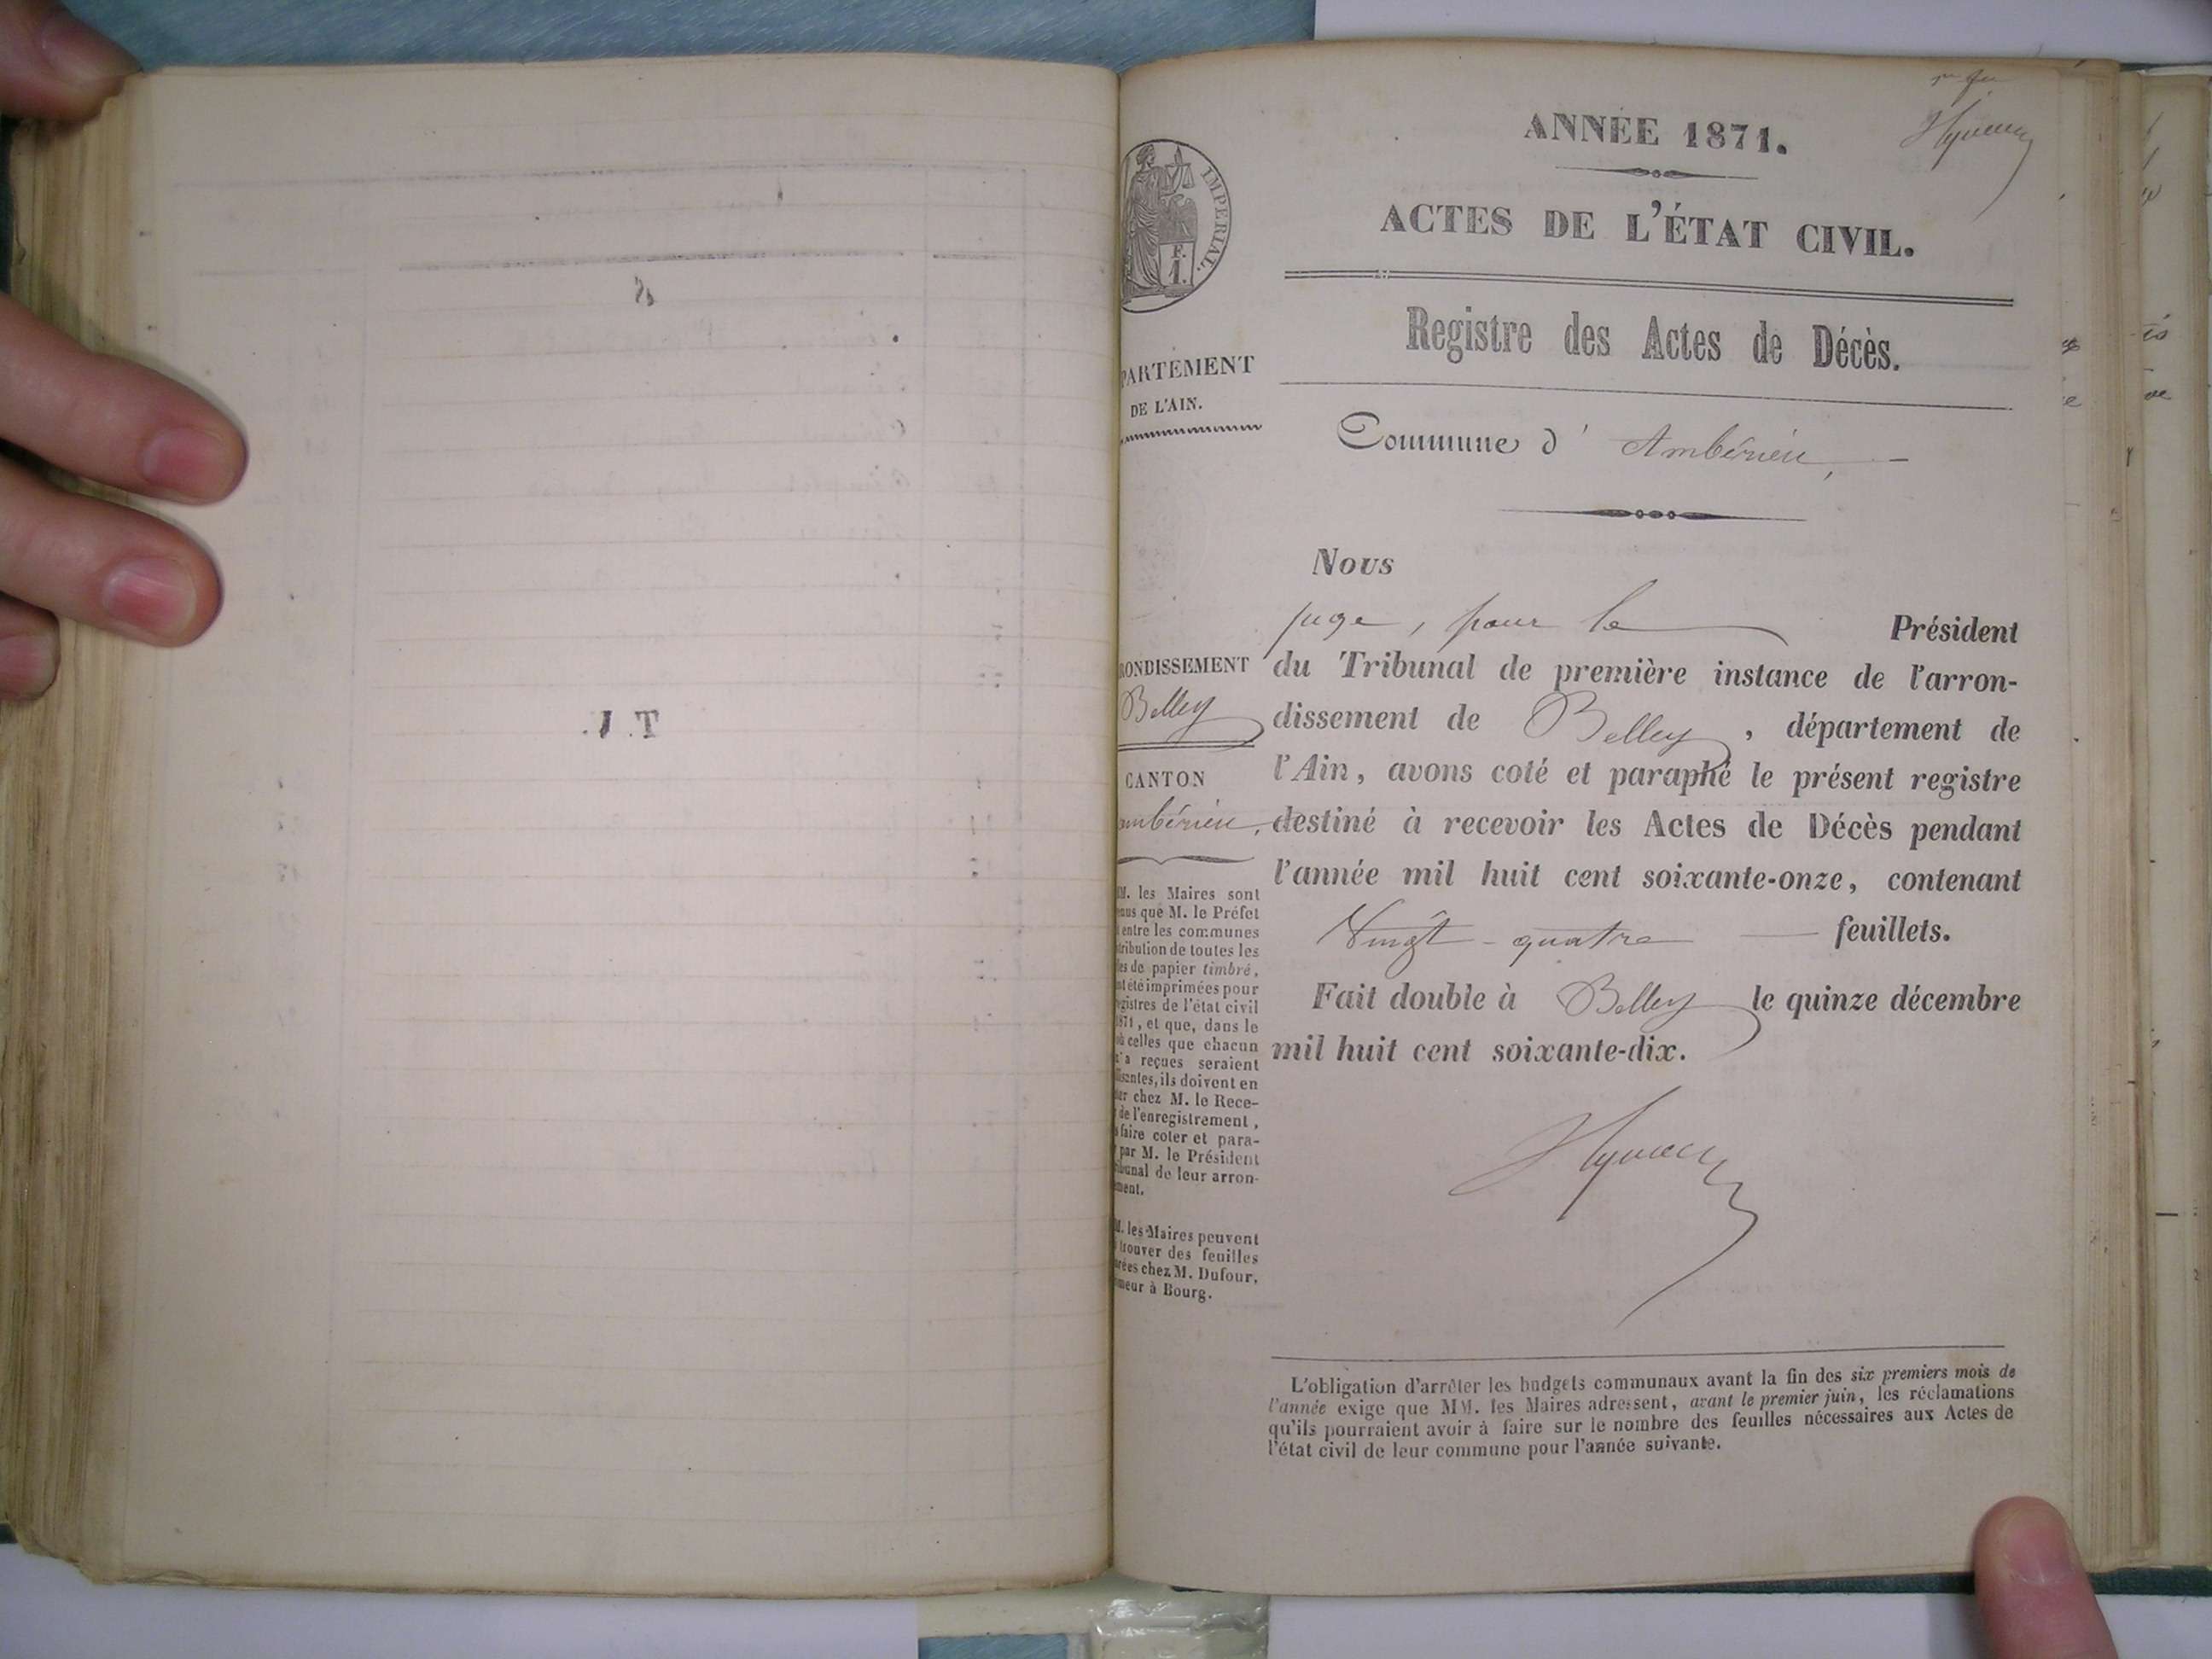 T. J.
ANNÉE 1871.
ACTES DE L'ÉTAT CIVIL.
IMPERIAL.
F.
1.
Registre des Actes de Décès.
PARTEMENT
DE L'AIN.
Commune d' Ambérieu,
Nous
juge, pour le Président
RONDISSEMENT
Belley
CANTON
ambérieu,
du Tribunal de première instance de l'arron-
dissement de Belley, département de
l'Ain, avons coté et paraphé le présent registre
destiné à recevoir les Actes de Décès pendant
l'année mil huit cent soixante-onze, contenant
Vingt-quatre feuillets.
Fait double à Belley le quinze décembre
mil huit cent soixante-dix.
M. les Maires sont
enus que M. le Préfet
entre les communes
tribution de toutes les
les de papier timbré,
nt été imprimées pour
egistres de l'état civil
871, et que, dans le
où celles que chacun
n'a reçues seraient
ffisantes, ils doivent en
er chez M. le Rece-
de l'enregistrement,
faire coter et para-
par M. le Président
ibunal de leur arron-
ment.
M. les Maires peuvent
trouver des feuilles
rées chez M. Dufour,
meur à Bourg.
L'obligation d'arrêter les budgets communaux avant la fin des six premiers mois de
l'année exige que MM. les Maires adressent, avant le premier juin, les réclamations
qu'ils pourraient avoir à faire sur le nombre des feuilles nécessaires aux Actes de
l'état civil de leur commune pour l'année suivante.